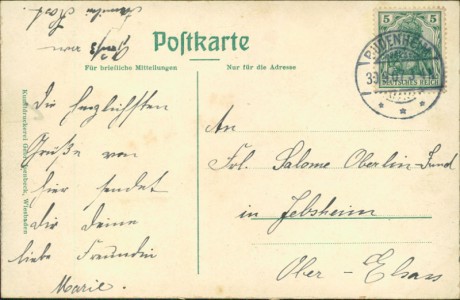 Postkarte
Für briefliche Mitteilungen
Nur für die Adresse
5 5
DEUTSCHES REICH
BUDENHEIM
Die herzlichsten
Grüße von
hier sendet
dir deine
liebe Freundin
Marie.
An
Frl. Salome Oberlin-
in Jebsheim
Ober-Elsass